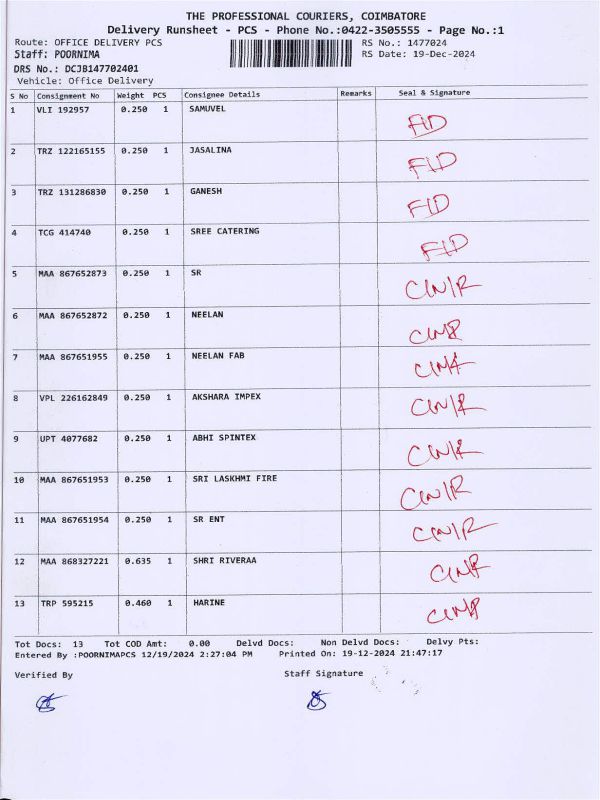 THE PROFESSIONAL COURIERS, COIMBATORE
Delivery Runsheet - PCS - Phone No.:0422-3505555 - Page No.:1
Route: OFFICE DELIVERY PCS RS No.: 1477024
Staff: POORNIMA RS Date: 19-Dec-2024
DRS No.: DCJB147702401
Vehicle: Office Delivery
S No Consignment No Weight PCS Consignee Details Remarks Seal & Signature
1 VLI 192957 0.250 1 SAMUVEL FID
2 TRZ 122165155 0.250 1 JASALINA FID
3 TRZ 131286830 0.250 1 GANESH FID
4 TCG 414740 0.250 1 SREE CATERING FID
5 MAA 867652873 0.250 1 SR
6 MAA 867652872 0.250 1 NEELAN
7 MAA 867651955 0.250 1 NEELAN FAB
8 VPL 226162849 0.250 1 AKSHARA IMPEX
9 UPT 4077682 0.250 1 ABHI SPINTEX
10 MAA 867651953 0.250 1 SRI LASKHMI FIRE
11 MAA 867651954 0.250 1 SR ENT
12 MAA 868327221 0.635 1 SHRI RIVERAA
13 TRP 595215 0.460 1 HARINE
Tot Docs: 13 Tot COD Amt: 0.00 Delvd Docs: Non Delvd Docs: Delvy Pts:
Entered By :POORNIMAPCS 12/19/2024 2:27:04 PM Printed On: 19-12-2024 21:47:17
Verified By Staff Signature